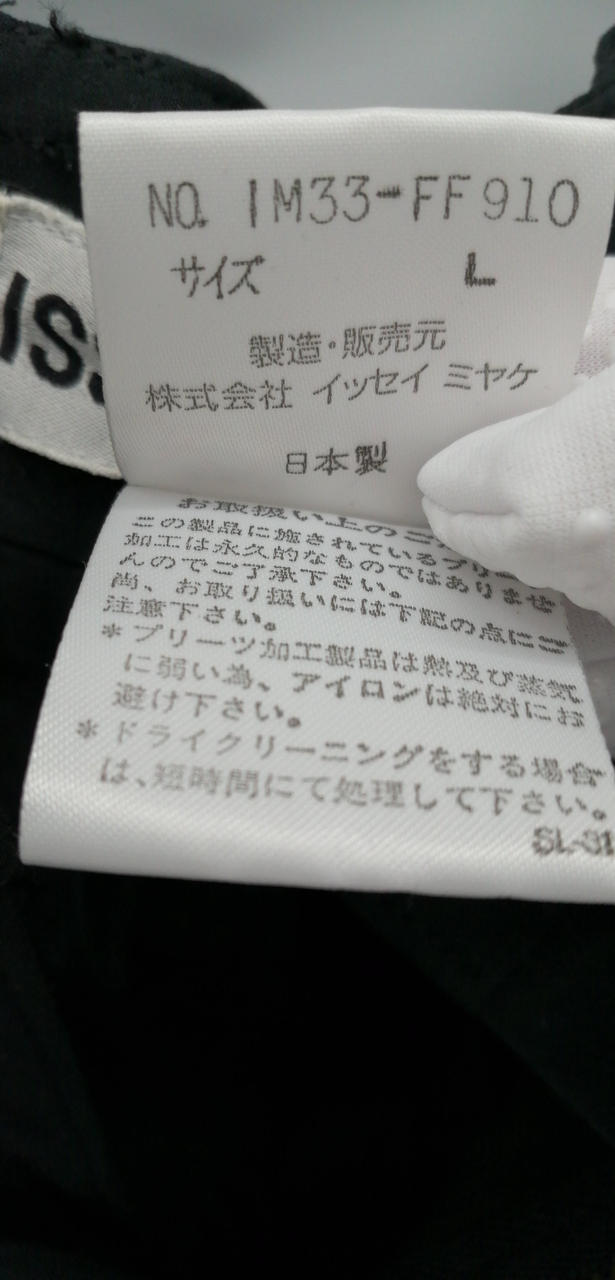 NO. IM33-FF910
サイズ L
製造・販売元
株式会社 イッセイ ミヤケ
日本製
ISS
お取扱い上のご
この製品に施されているプリ
加工は永久的なものではありませ
んのでご了承下さい。
尚、お取り扱いには下記の点にご
注意下さい。
*プリーツ加工製品は熱及び蒸気
に弱い為、アイロンは絶対にお
避け下さい。
*ドライクリーニングをする場合
は、短時間にて処理して下さい。
SL-31